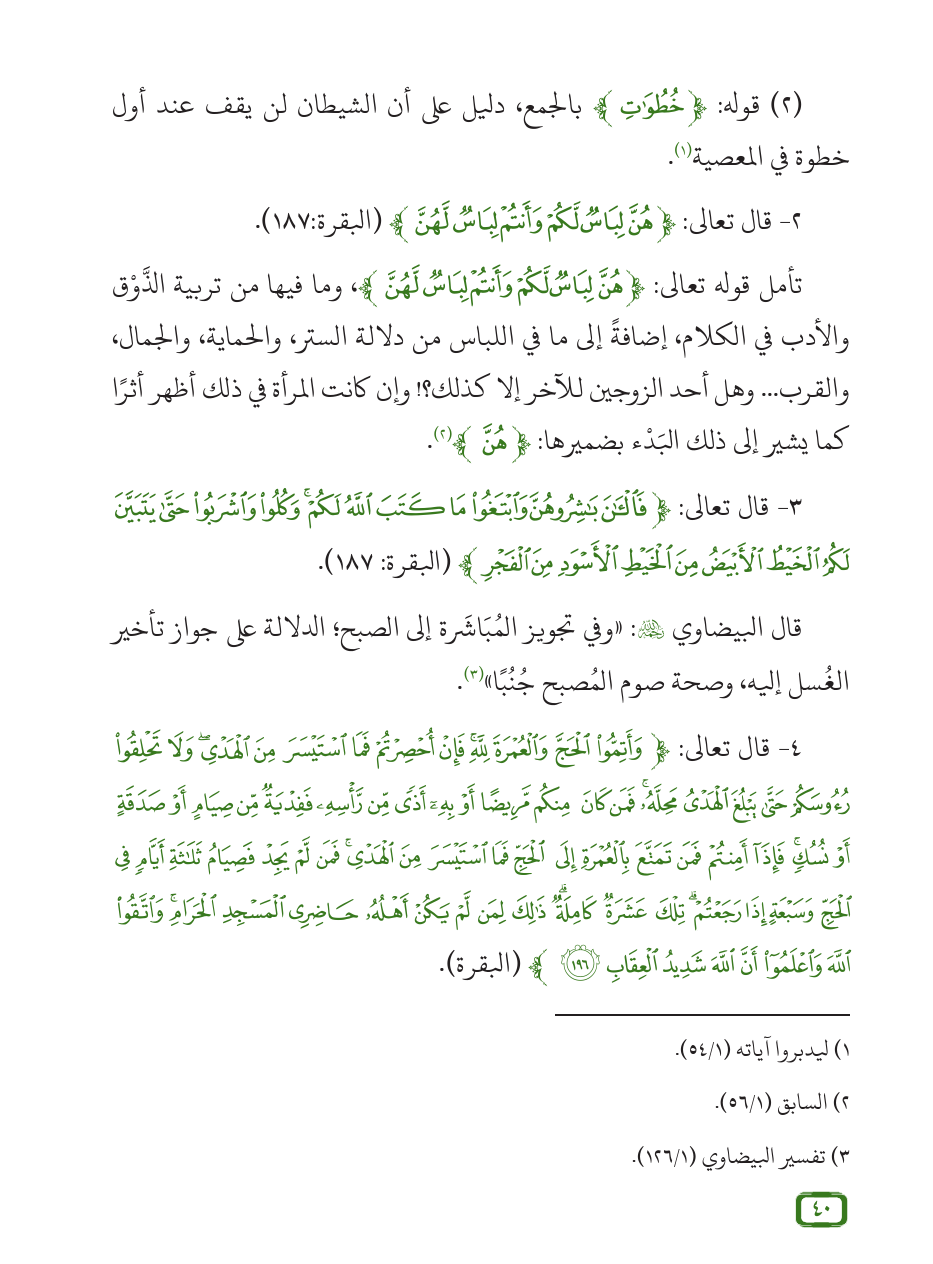 (٢) قوله: ﴿خُطُوَٰتِ﴾ بالجمع، دليل على أن الشيطان لن يقف عند أول
خطوة في المعصية(١).
٢- قال تعالى: ﴿هُنَّ لِبَاسٌ لَّكُمْ وَأَنتُمْ لِبَاسٌ لَّهُنَّ﴾ (البقرة:١٨٧).
تأمل قوله تعالى: ﴿هُنَّ لِبَاسٌ لَّكُمْ وَأَنتُمْ لِبَاسٌ لَّهُنَّ﴾، وما فيها من تربية الذَّوْق
والأدب في الكلام، إضافةً إلى ما في اللباس من دلالة الستر، والحماية، والجمال،
والقرب... وهل أحد الزوجين للآخر إلا كذلك؟! وإن كانت المرأة في ذلك أظهر أثرًا
كما يشير إلى ذلك البَدْء بضميرها: ﴿هُنَّ﴾(٢).
٣- قال تعالى: ﴿فَٱلْـَٰٔنَ بَـٰشِرُوهُنَّ وَٱبْتَغُوا۟ مَا كَتَبَ ٱللَّهُ لَكُمْ ۚ وَكُلُوا۟ وَٱشْرَبُوا۟ حَتَّىٰ يَتَبَيَّنَ
لَكُمُ ٱلْخَيْطُ ٱلْأَبْيَضُ مِنَ ٱلْخَيْطِ ٱلْأَسْوَدِ مِنَ ٱلْفَجْرِ﴾ (البقرة: ١٨٧).
قال البيضاوي رحمه الله: «وفي تجويز المُبَاشَرة إلى الصبح؛ الدلالة على جواز تأخير
الغُسل إليه، وصحة صوم المُصبح جُنُبًا»(٣).
٤- قال تعالى: ﴿وَأَتِمُّوا۟ ٱلْحَجَّ وَٱلْعُمْرَةَ لِلَّهِ ۚ فَإِنْ أُحْصِرْتُمْ فَمَا ٱسْتَيْسَرَ مِنَ ٱلْهَدْىِ ۖ وَلَا تَحْلِقُوا۟
رُءُوسَكُمْ حَتَّىٰ يَبْلُغَ ٱلْهَدْىُ مَحِلَّهُۥ ۚ فَمَن كَانَ مِنكُم مَّرِيضًا أَوْ بِهِۦٓ أَذًى مِّن رَّأْسِهِۦ فَفِدْيَةٌ مِّن صِيَامٍ أَوْ صَدَقَةٍ
أَوْ نُسُكٍ ۚ فَإِذَآ أَمِنتُمْ فَمَن تَمَتَّعَ بِٱلْعُمْرَةِ إِلَى ٱلْحَجِّ فَمَا ٱسْتَيْسَرَ مِنَ ٱلْهَدْىِ ۚ فَمَن لَّمْ يَجِدْ فَصِيَامُ ثَلَـٰثَةِ أَيَّامٍ فِى
ٱلْحَجِّ وَسَبْعَةٍ إِذَا رَجَعْتُمْ ۗ تِلْكَ عَشَرَةٌ كَامِلَةٌ ۗ ذَٰلِكَ لِمَن لَّمْ يَكُنْ أَهْلُهُۥ حَاضِرِى ٱلْمَسْجِدِ ٱلْحَرَامِ ۚ وَٱتَّقُوا۟
ٱللَّهَ وَٱعْلَمُوٓا۟ أَنَّ ٱللَّهَ شَدِيدُ ٱلْعِقَابِ ١٩٦﴾ (البقرة).
١) ليدبروا آياته (٥٤/١).
٢) السابق (٥٦/١).
٣) تفسير البيضاوي (١٢٦/١).
٤٠